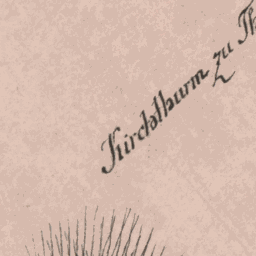 Kirchthurm zu Th